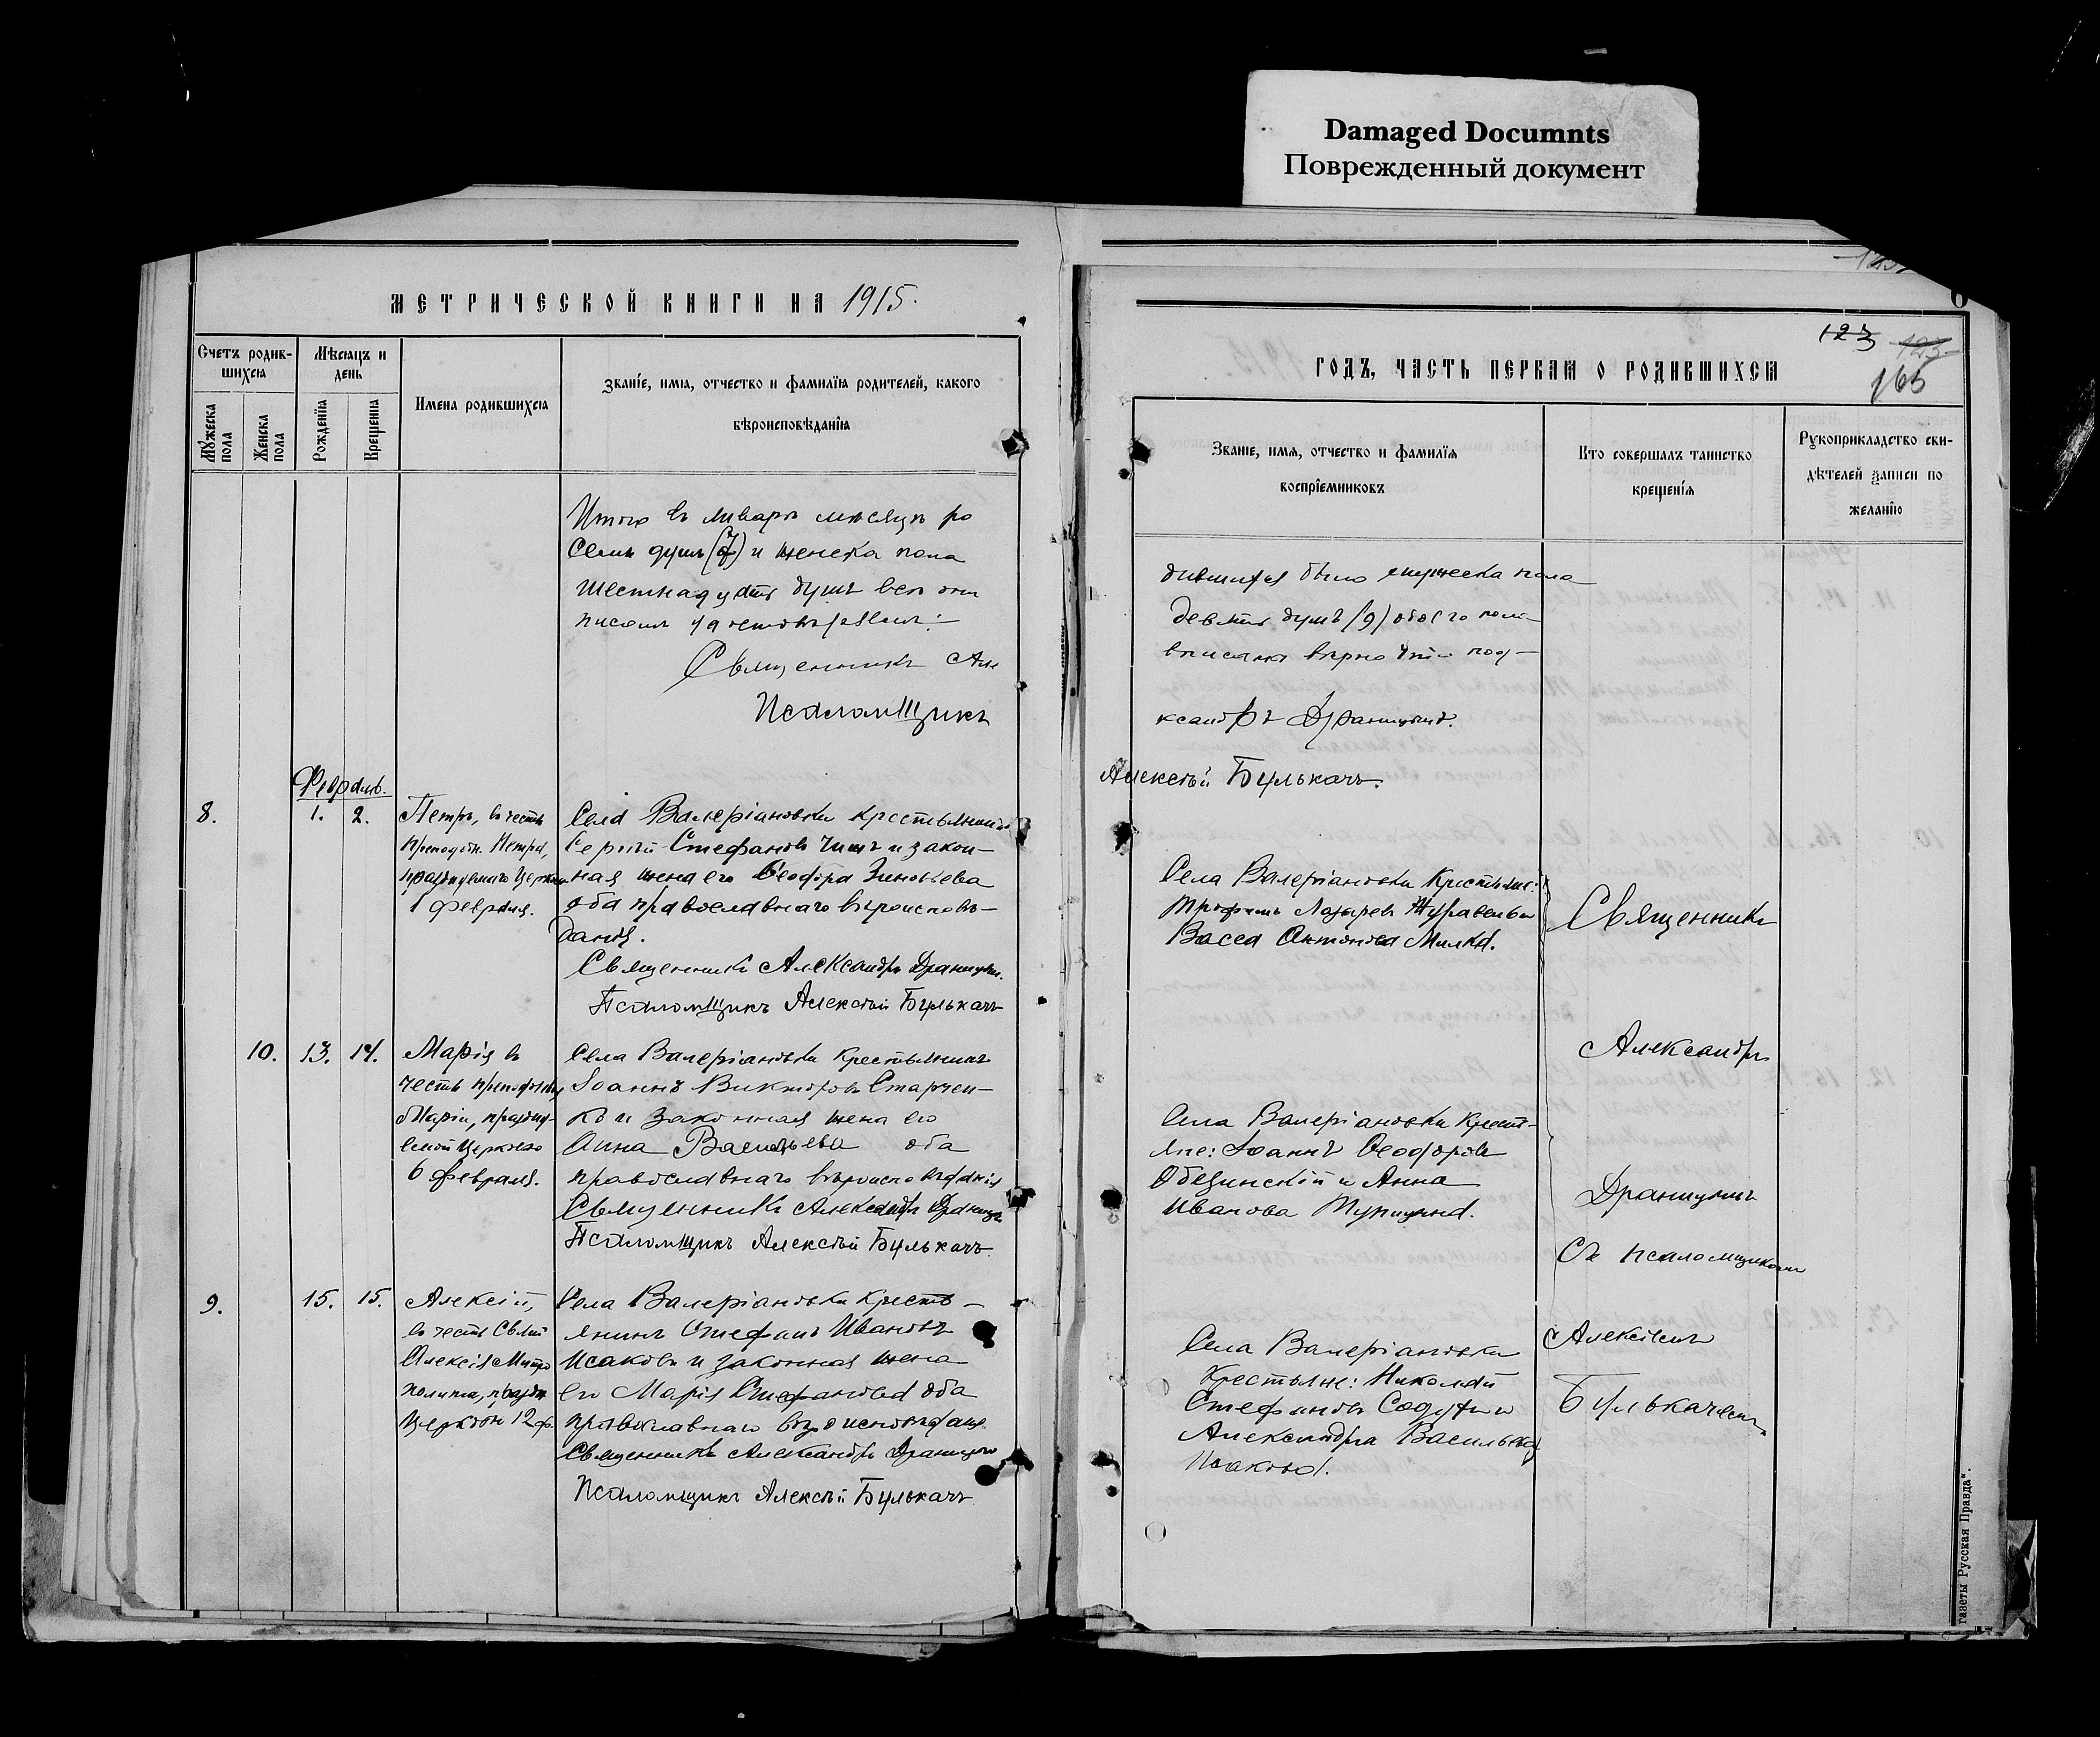 Damaged Documnts
Поврежденный документ
МЕТРИЧЕСКОЙ КНИГИ НА 1915.
Счетъ родив-
шихся
Мѣсяцъ и
день
Имена родившихся
Званіе, имя, отчество и фамилія родителей, какого
вѣроисповѣданія
Мужеска
пола
Женска
пола
Рожденія
Крещенія
Итого въ январѣ мѣсяцѣ ро
семь душъ (7) и женска пола
шестнадцать душъ
Священникъ Але
Псаломщикъ
Февраль.
8. 1. 2.
Петръ, въ честь
преподобн. Петра,
празднуемаго Церков
1 февраля.
Села Валеріановки крестьянинъ
Сергій Стефановъ Чишъ и закон-
ная жена его Ѳеодора Зиновьева
оба православнаго вѣроисповѣ-
данія.
Священникъ Александръ Драницынъ.
Псаломщикъ Алексѣй Булькачъ
10. 13. 14.
Марія въ
честь преподобны
Маріи, праздну-
емой Церковью
6 февраля.
Села Валеріановки крестьянинъ
Іоаннъ Викторовъ Старчен-
ко и законная жена его
Анна Васильева оба
православнаго вѣроисповѣданія
Священникъ Александръ Драницын
Псаломщикъ Алексѣй Булькачъ
9. 15. 15.
Алексій,
въ честь Святит
Алексія Митро
полита, праздн
Церковью 12 ф.
Села Валеріановки кресть-
янинъ Стефанъ Ивановъ
Исаковъ и законная жена
его Марія Стефанова оба
православнаго вѣроисповѣдані
Священникъ Александръ Драницын
Псаломщикъ Алексѣй Булькачъ
123 123
165
ГОДЪ, ЧАСТЬ ПЕРВАЯ О РОДИВШИХСЯ
Званіе, имя, отчество и фамилія
воспріемниковъ
Кто совершалъ таинство
крещенія
Рукоприкладство сви-
дѣтелей записи по
желанію
дившихся было мужеска пола
девять душъ (9) обоего пола
вписаны вѣрно что под-
ксандръ Драницынъ.
Алексѣй Булькачъ.
Села Валеріановки Крестьяне:
Трофимъ Лазаревъ Журавель и
Васса Антонова Милка.
Села Валеріановки Кресть-
яне: Іоаннъ Ѳеодоровъ
Обезинскій и Анна
Иванова
Села Валеріановки
Крестьяне: Николай
Стефановъ и
Александра Васильева
Исакова.
Священникъ
Александръ
Драницынъ
Съ псаломщикомъ
Алексѣемъ
Булькачемъ
газеты Русская Правда".